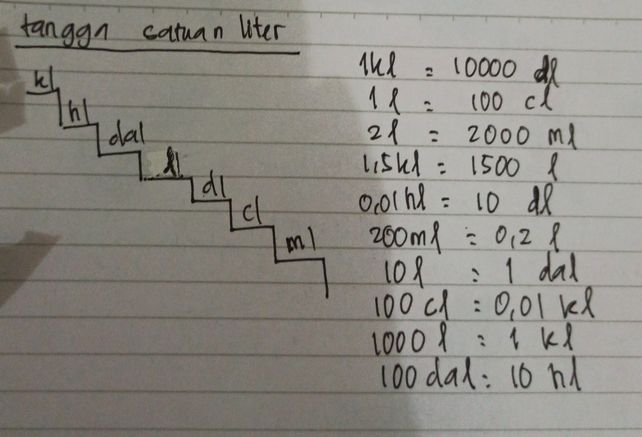 tangga catuan liter
kl
hl
dal
l
dl
cl
ml
1kl = 10000 dl
1 l = 100 cl
2 l = 2000 ml
1,5kl = 1500 l
0,01hl = 10 dl
200ml = 0,2 l
10 l = 1 dal
100 cl = 0,01 kl
1000 l = 1 kl
100 dal = 10 hl